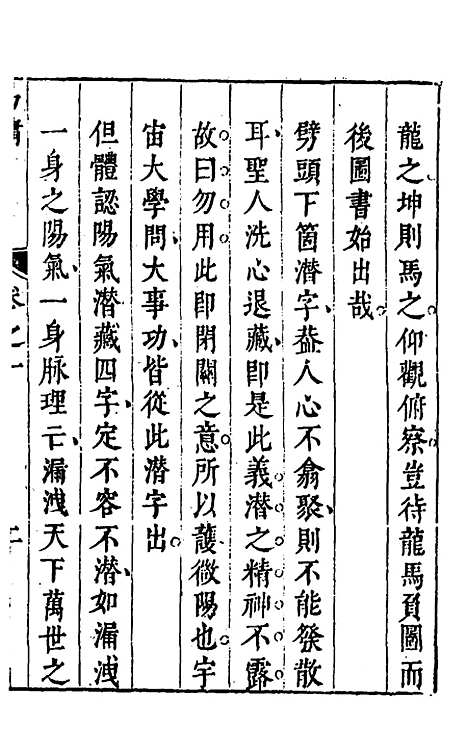 龍之坤則馬之仰觀俯察豈待龍馬負圖而
後圖書始出哉
劈頭下箇潛字葢人心不翕聚則不能發散
耳聖人洗心退藏即是此義潛之精神不露
故曰勿用此即閉關之意所以護微陽也宇
宙大學問大事功皆從此潛字出
但體認陽氣潛藏四字定不容不潛如漏洩
一身之陽氣一身脉理亡漏洩天下萬世之
卷之一
二